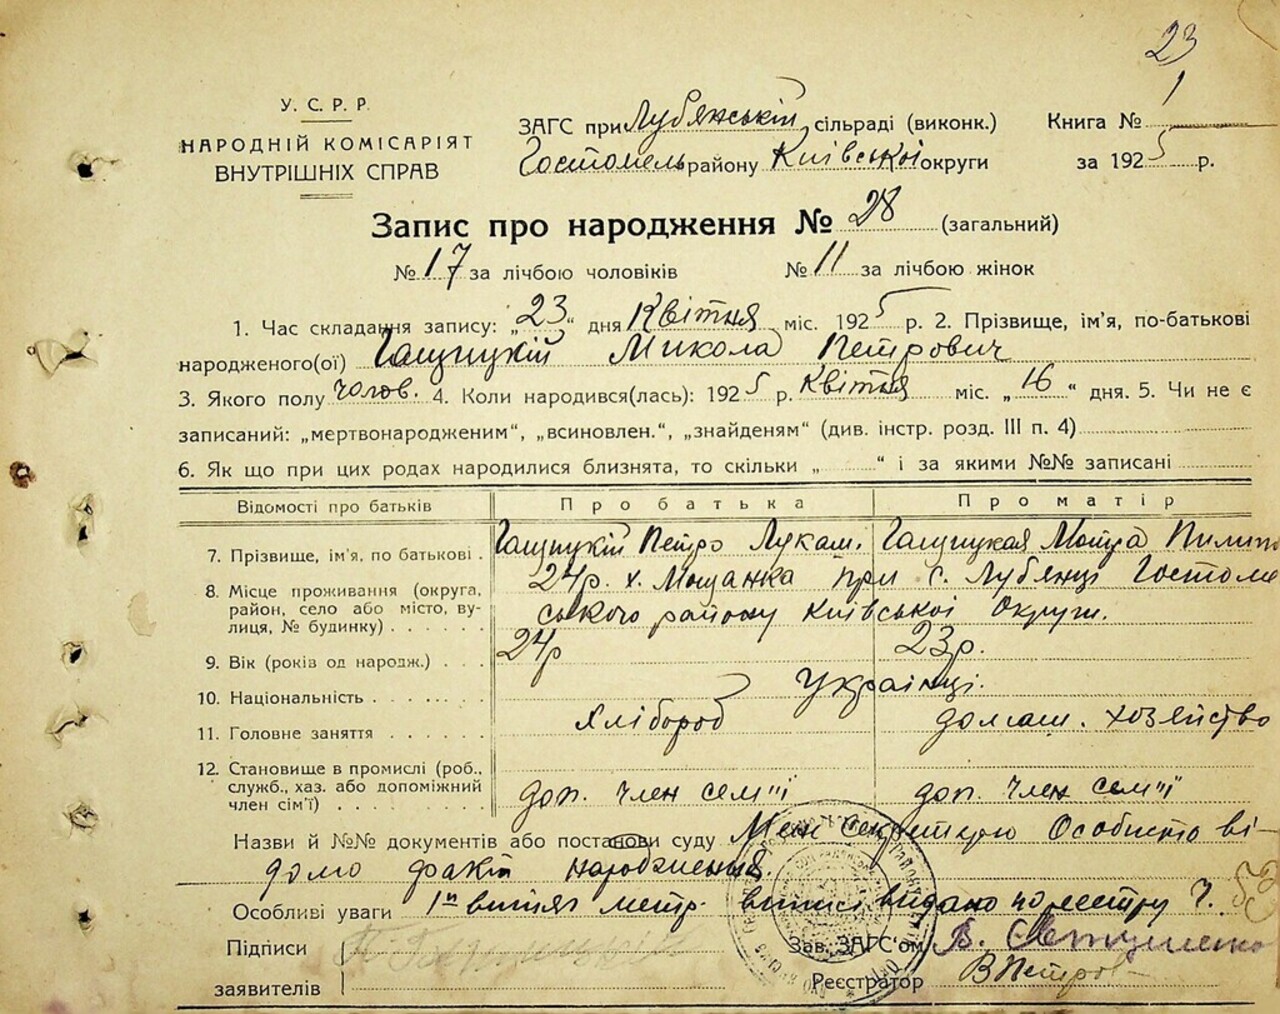 23
У. С. Р. Р.
НАРОДНІЙ КОМІСАРІЯТ
ВНУТРІШНІХ СПРАВ
ЗАГС при Лубянській сільраді (виконк.)
Гостомель району Київської округи
Книга № 1
за 1925 р.
Запис про народження № 28 (загальний)
№ 17 за лічбою чоловіків № 11 за лічбою жінок
1. Час складання запису: „23“ дня Квітня міс. 1925 р. 2. Прізвище, ім'я, по-батькові
народженого(ої) Микола Петрович
3. Якого полу чолов. 4. Коли народився(лась): 1925 р. Квітня міс. „16“ дня. 5. Чи не є
записаний: „мертвонародженим“, „всиновлен.“, „знайденям“ (див. інстр. розд. III п. 4)
6. Як що при цих родах народилися близнята, то скільки „ “ і за якими №№ записані
Відомості про батьків Про батька Про матір
7. Прізвище, ім'я, по батькові . Петро Лукаш. Мотра Пилип
8. Місце проживання (округа, район, село або місто, вулиця, № будинку) . . . . . . 24р. х. Мощанка при с. Лубянці Гостоме
ського району Київської Округи.
9. Вік (років од народж.) . . . 24р 23р.
10. Національність . . . . . . українці.
11. Головне заняття . . . . . . Хлібороб домаш. хозяйство
12. Становище в промислі (роб., служб., хаз. або допоміжний член сім'ї) . . . . . . . . доп. член сем'ї доп. член сем'ї
Назви й №№ документів або постанови суду Мені Секретарю Особисто ві-
домо факт народження.
Особливі уваги 1й витяг метр. виписі видано по реєстру Ч. 53
Підписи
заявителів
Зав. ЗАГС'ом В. Євтушенко
Реєстратор ВПетров